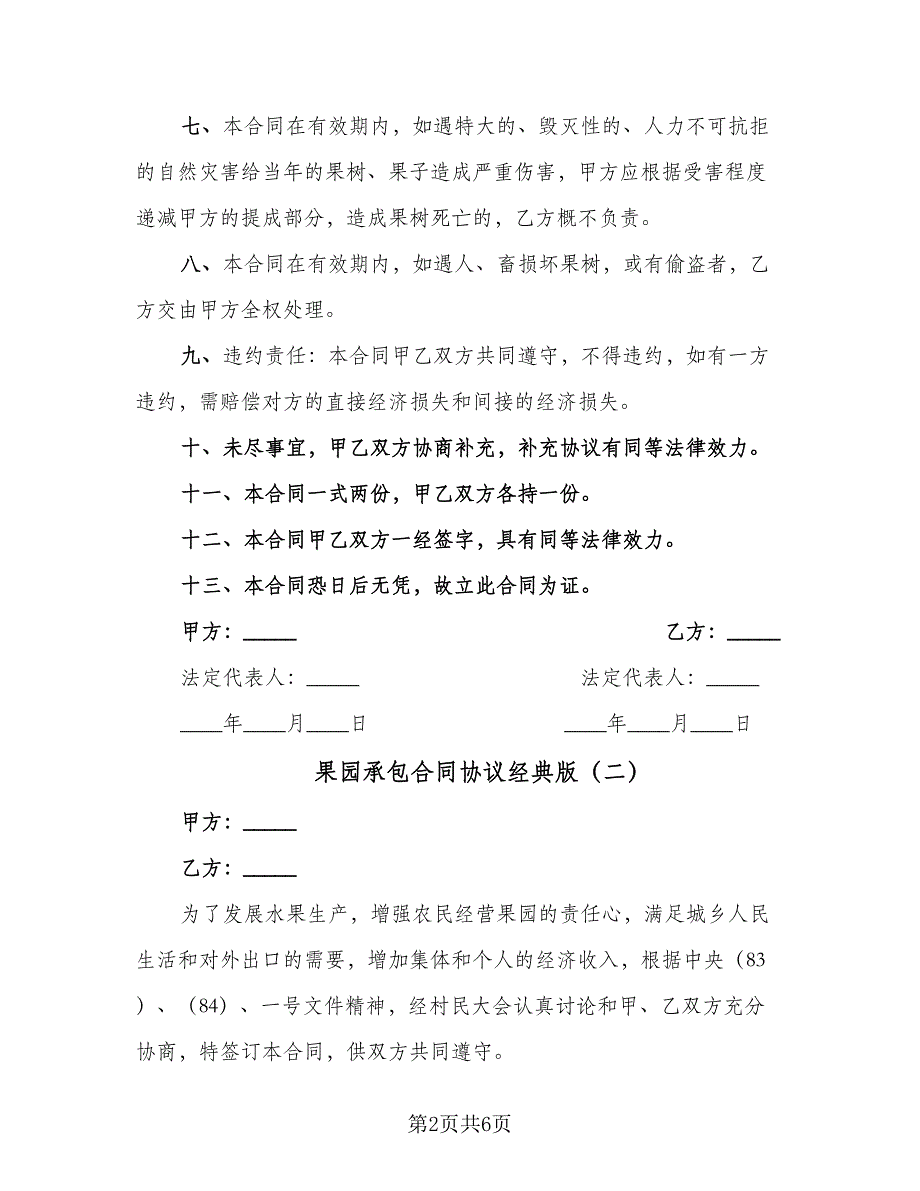 七、本合同在有效期内，如遇特大的、毁灭性的、人力不可抗拒
的自然灾害给当年的果树、果子造成严重伤害，甲方应根据受害程度
递减甲方的提成部分，造成果树死亡的，乙方概不负责。
八、本合同在有效期内，如遇人、畜损坏果树，或有偷盗者，乙
方交由甲方全权处理。
九、违约责任：本合同甲乙双方共同遵守，不得违约，如有一方
违约，需赔偿对方的直接经济损失和间接的经济损失。
十、未尽事宜，甲乙双方协商补充，补充协议有同等法律效力。
十一、本合同一式两份，甲乙双方各持一份。
十二、本合同甲乙双方一经签字，具有同等法律效力。
十三、本合同恐日后无凭，故立此合同为证。
甲方：_____ 乙方：_____
法定代表人：_____ 法定代表人：_____
____年____月____日 ____年____月____日
果园承包合同协议经典版（二）
甲方：_____
乙方：_____
为了发展水果生产，增强农民经营果园的责任心，满足城乡人民
生活和对外出口的需要，增加集体和个人的经济收入，根据中央（83
）、（84）、一号文件精神，经村民大会认真讨论和甲、乙双方充分
协商，特签订本合同，供双方共同遵守。
第2页共6页